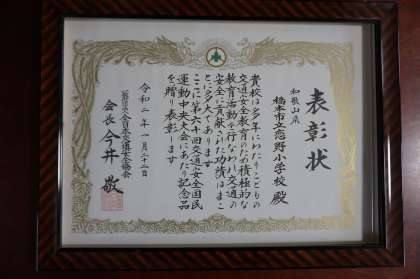 表彰状
和歌山県
橋本市立恋野小学校殿
貴校は多年にわたりこどもの
交通安全教育のため積極的な
教育活動を行なわれ交通の
安全に貢献された功績はまこ
とに多大であります
ここに第六十回交通安全国民
運動中央大会にあたり記念品
を贈り表彰します
令和二年一月二十二日
全日本交通安全協会
会長 今井 敬